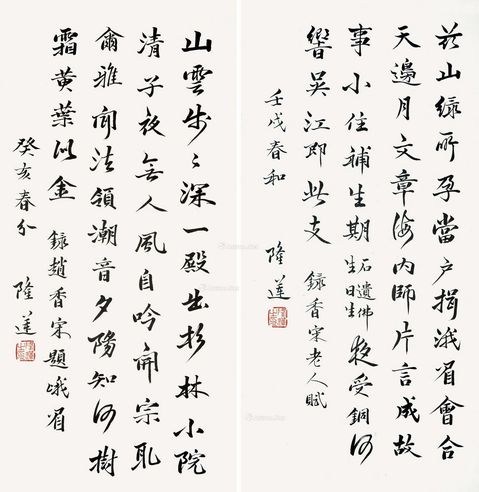 茲山綠所孕當户揖涐眉會合
天邊月文章海内師片言成故
事小住補生期石遺佛生日生夜受銅河
響吴江即此支 錄香宋老人賦
壬戌春和 隆蓮
山雲步〻深一殿出杉林小院
清子夜無人風自吟開宗取
爾雅聞法領潮音夕陽知何樹
霜黄葉似金 錄趙香宋題峨眉
癸亥春分 隆蓮